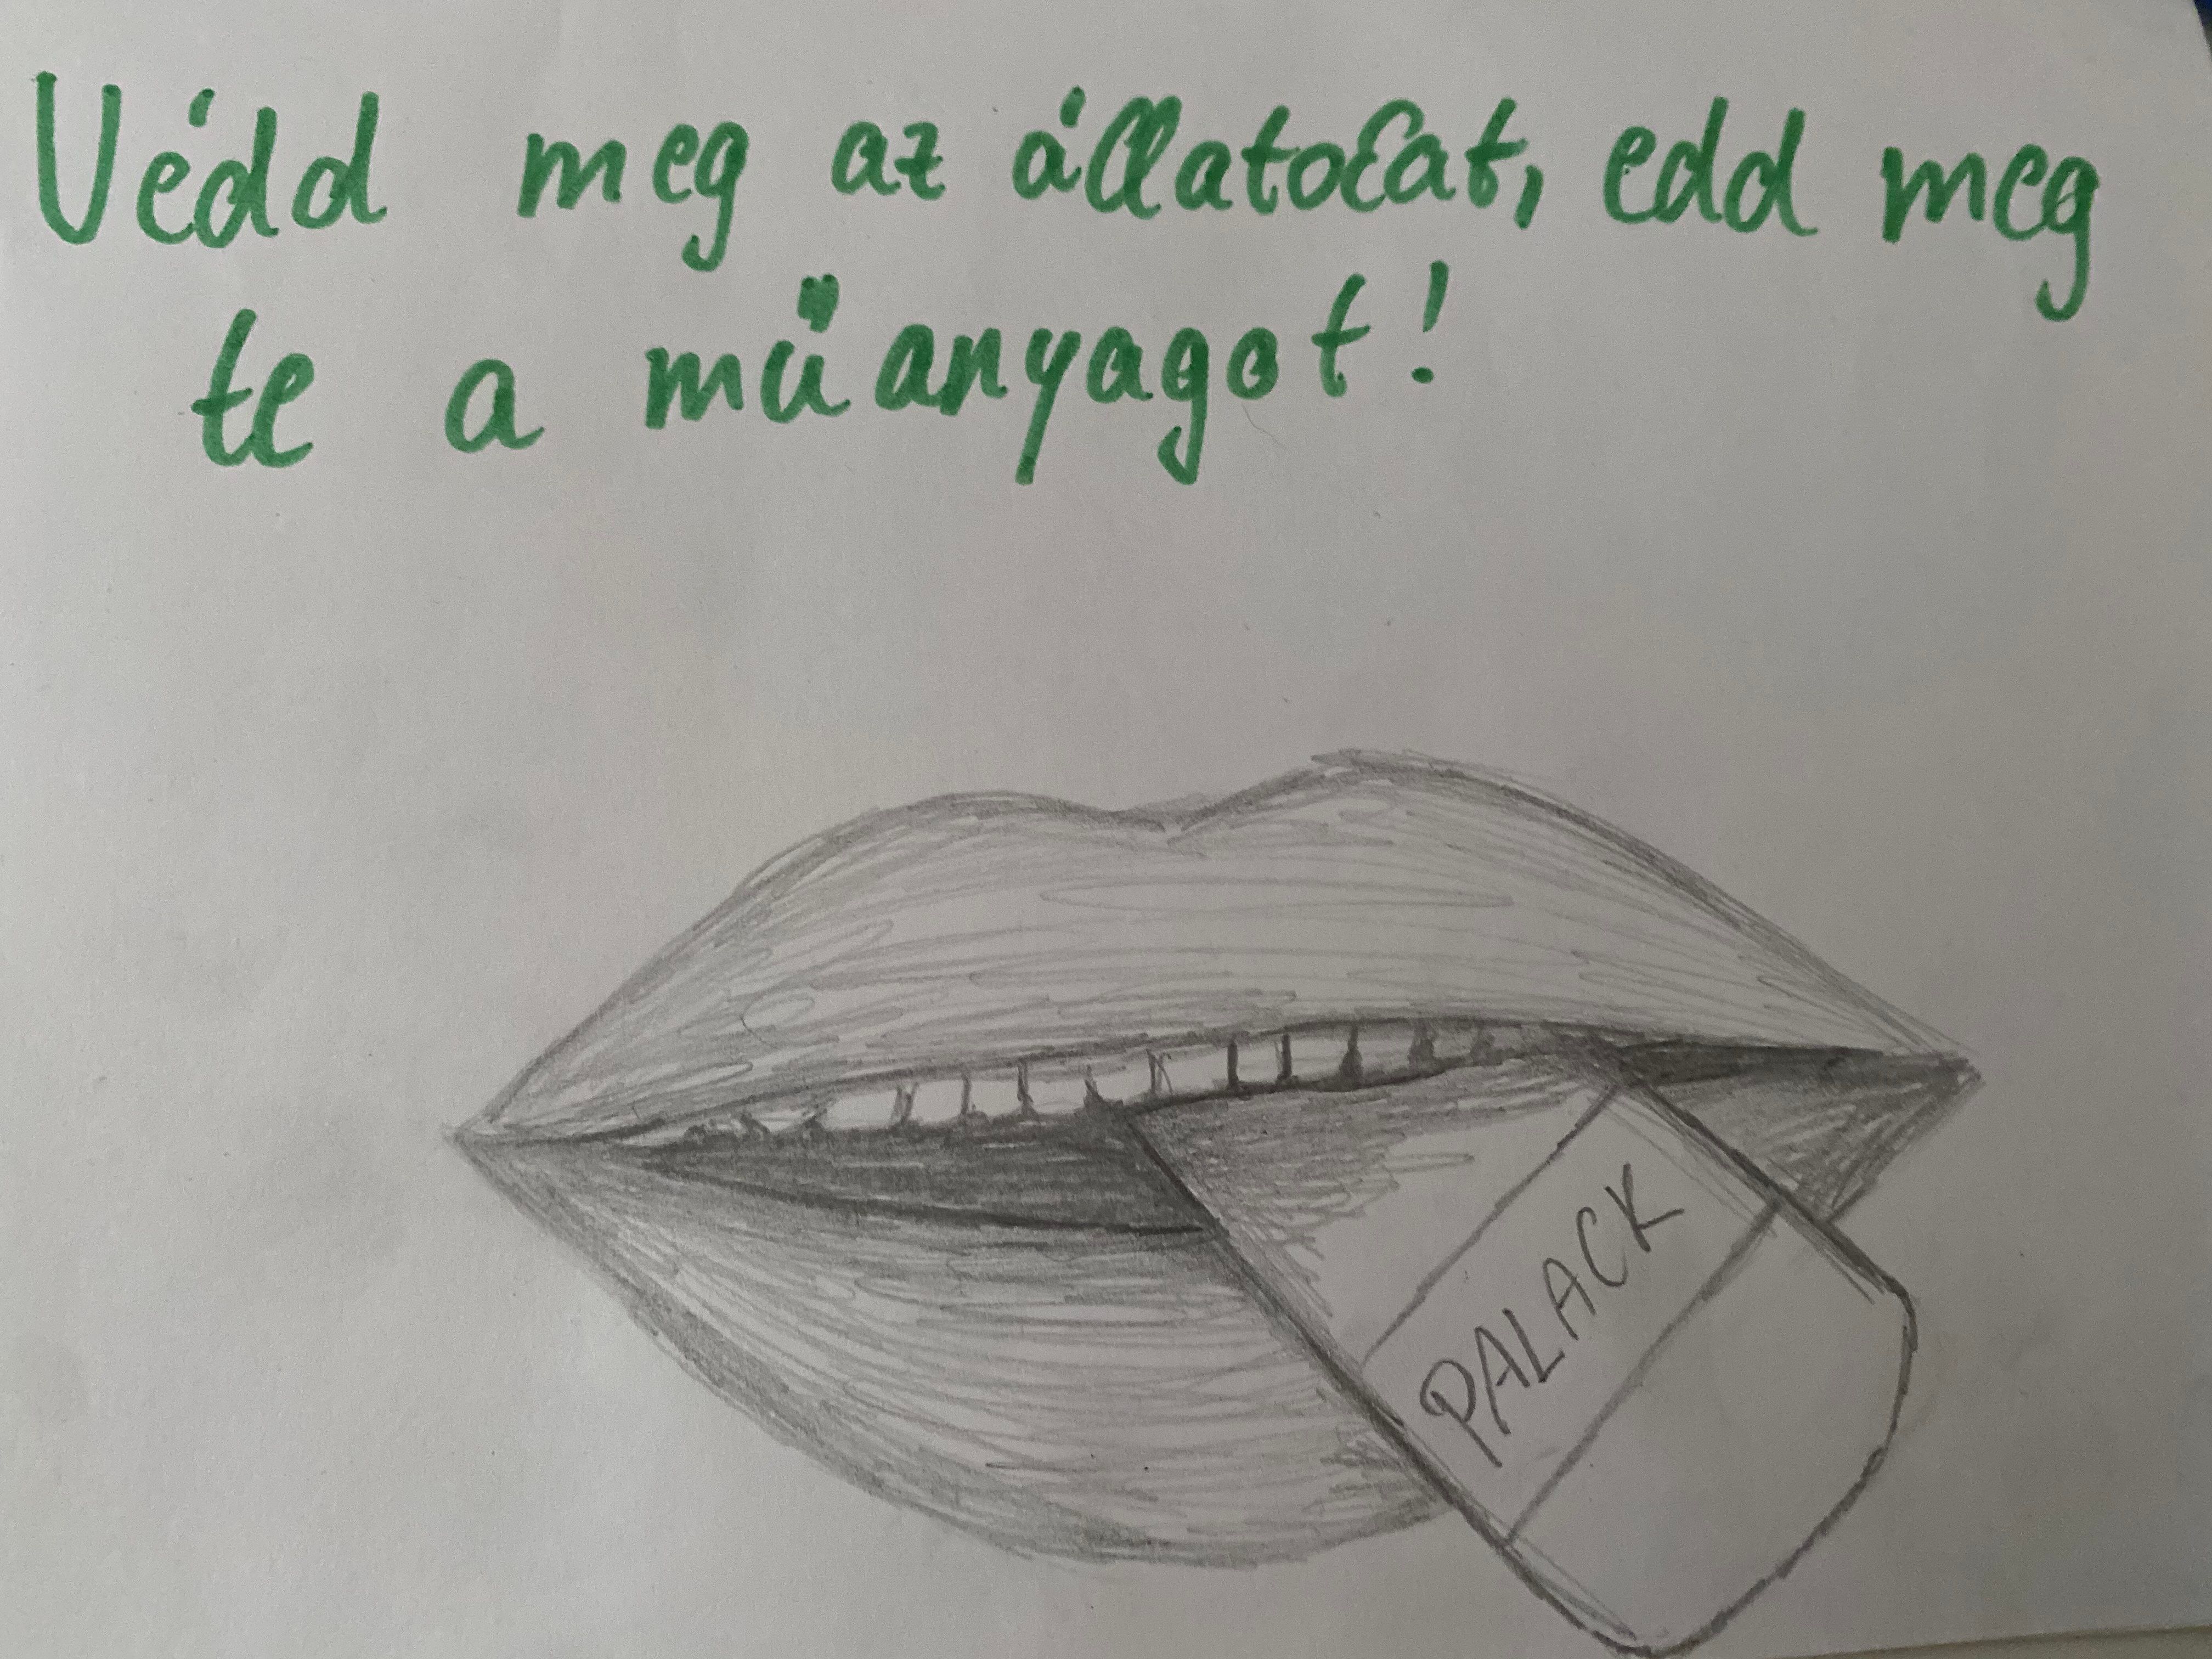 Védd meg az állatokat, edd meg
te a műanyagot!
PALACK